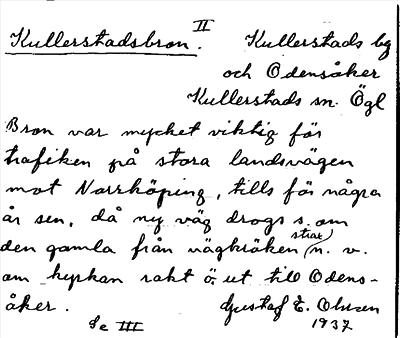 II
Kullerstadsbron. Kullerstads bg
och Odensåker
Kullerstads sn. Ögl
Bron var mycket viktig för
trafiken på stora landsvägen
mot Norrköping, tills för några
år sen, då ny väg drogs s. om
den gamla från vägkröken strax n. v.
om kyrkan rakt ö. ut till Odens-
åker. Gustaf E. Olsson
Se III 1937